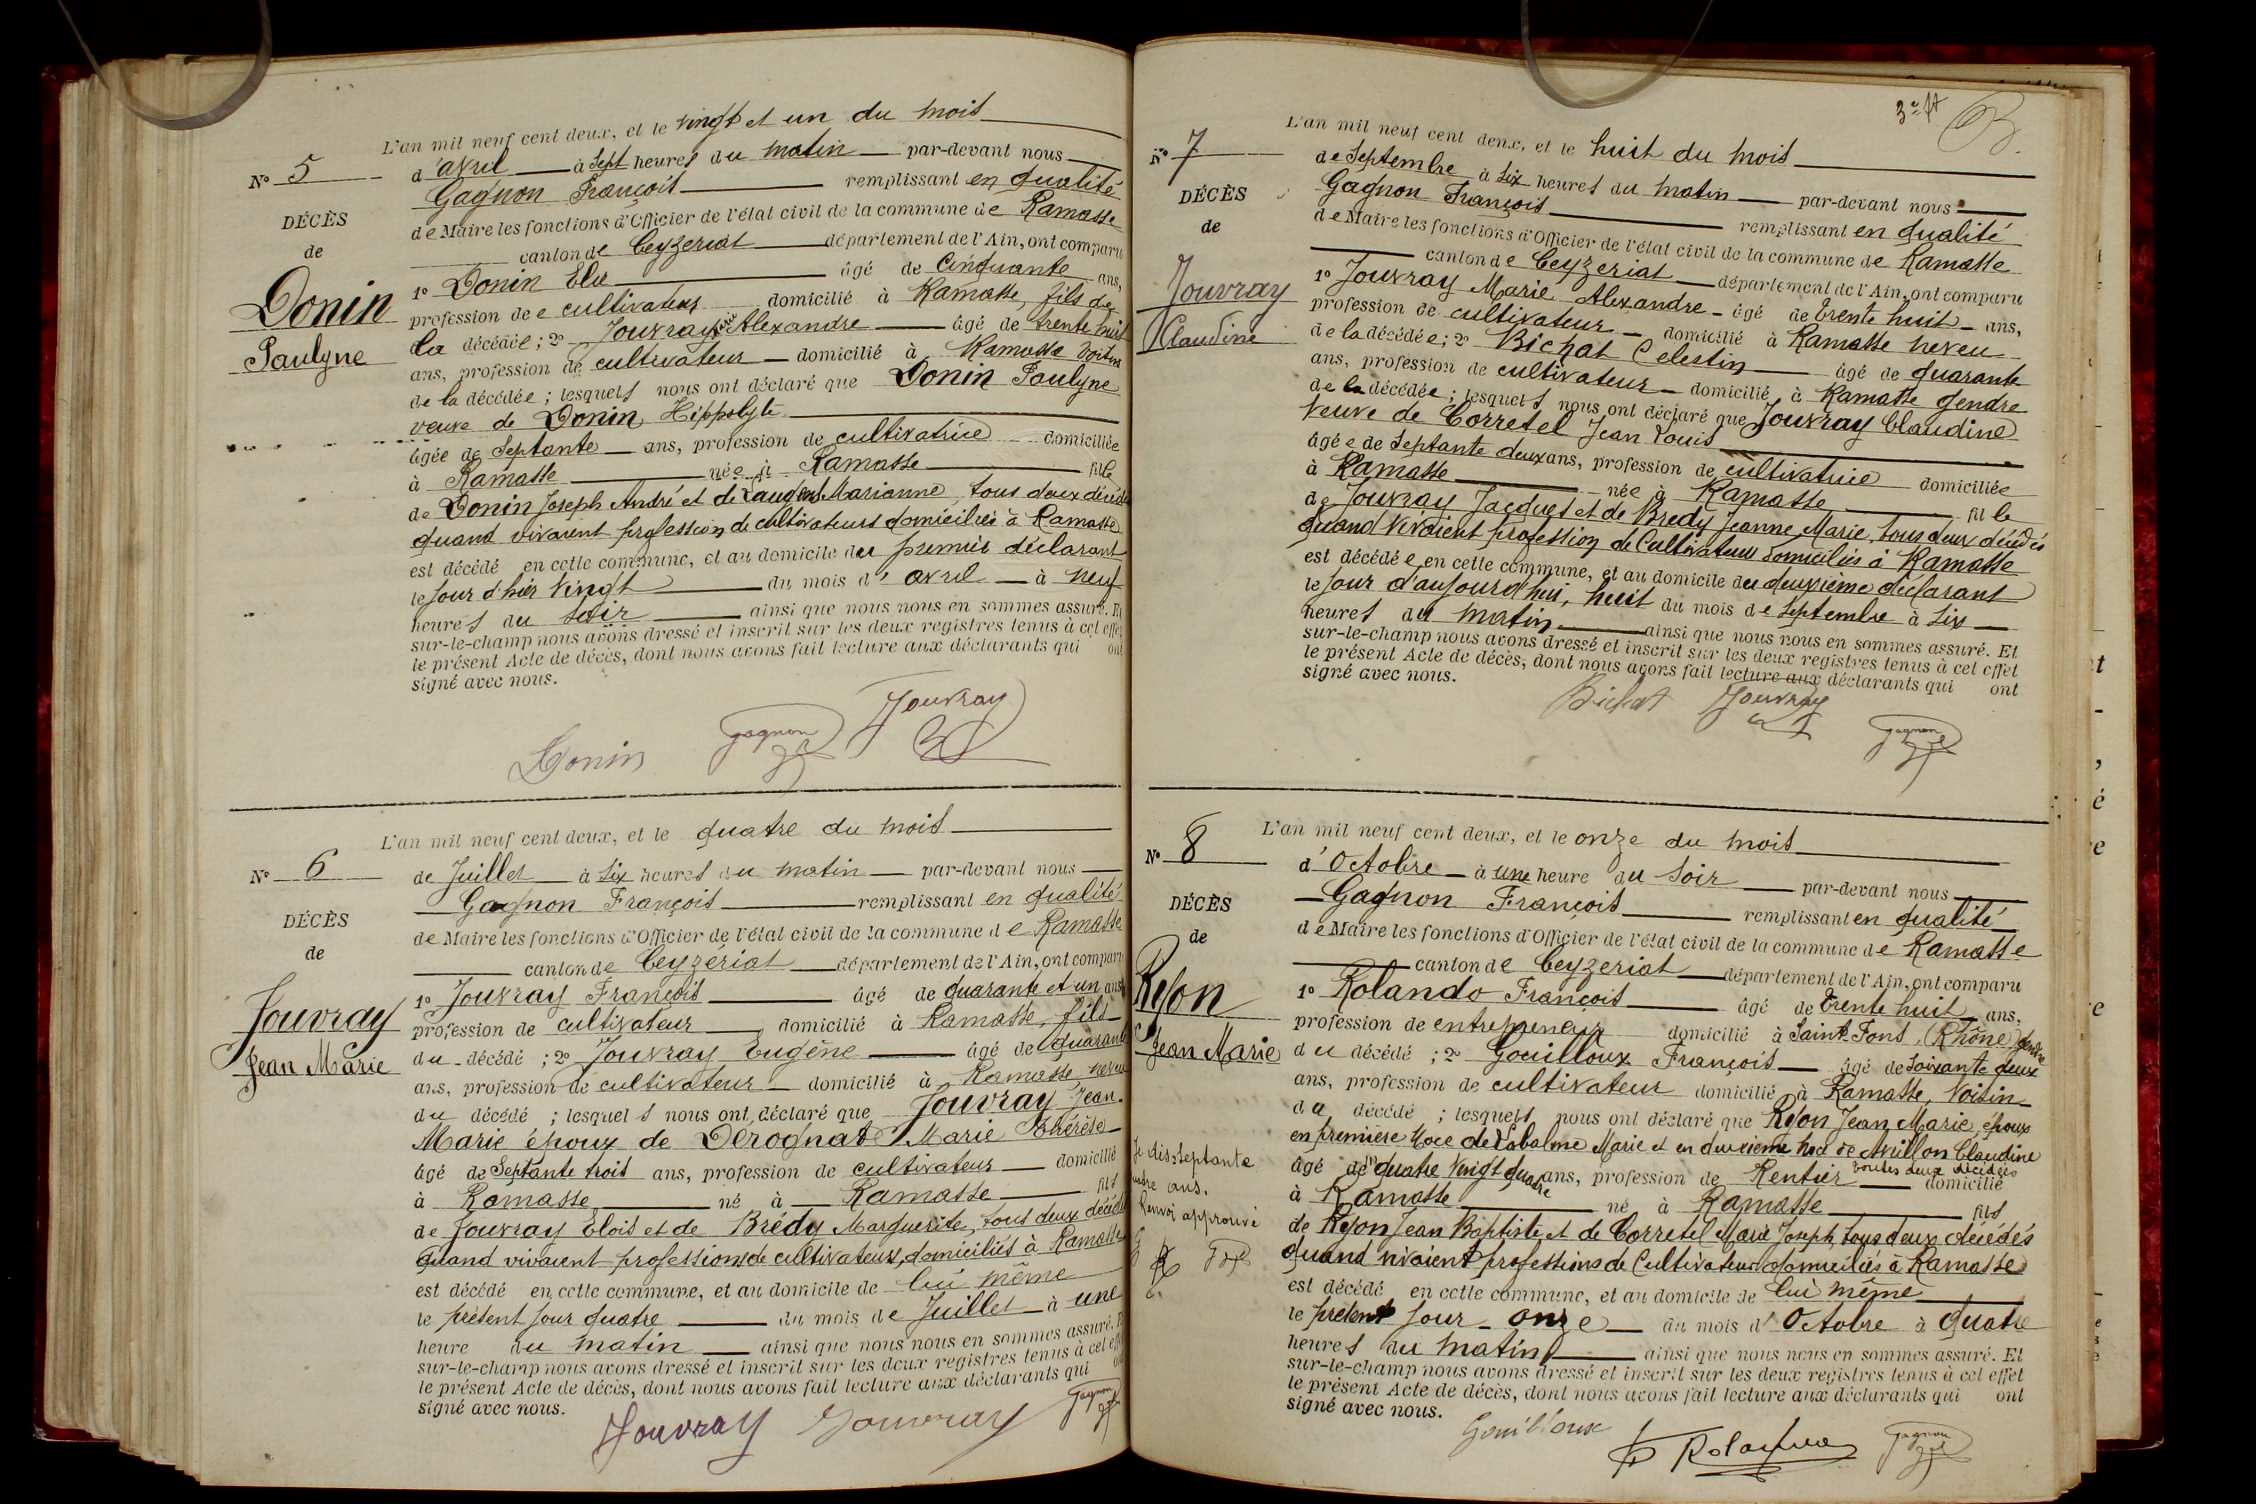 N° 5
DÉCÈS
de
Donin
Paulyne
L'an mil neuf cent deux, et le vingt et un du mois
d'avril à sept heures du matin par-devant nous
Gagnon François remplissant en qualité
de Maire les fonctions d'Officier de l'état civil de la commune de Ramasse
canton de Ceyzeriat département de l'Ain, ont comparu
1° Donin Elie âgé de cinquante ans,
profession de cultivateur domicilié à Ramasse, fils de
la décédée ; 2° Jouvray Alexandre âgé de trente huit
ans, profession de cultivateur domicilié à Ramasse voisin
de la décédée ; lesquels nous ont déclaré que Donin Paulyne
veuve de Donin Hippolyte
âgée de Septante ans, profession de cultivatrice domiciliée
à Ramasse née à Ramasse fille
de Donin Joseph André et de Marianne, tous deux décédés
quand vivaient profession de cultivateurs domiciliés à Ramasse
est décédé en cette commune, et au domicile du premier déclarant
le jour d'hier vingt du mois d'avril à neuf
heures du soir ainsi que nous nous en sommes assuré. Et
sur-le-champ nous avons dressé et inscrit sur les deux registres tenus à cet effet
le présent Acte de décès, dont nous avons fait lecture aux déclarants qui ont
signé avec nous.
Donin Gagnon Jouvray
N° 6
DÉCÈS
de
Jouvray
Jean Marie
L'an mil neuf cent deux, et le quatre du mois
de Juillet à six heures du matin par-devant nous
Gagnon François remplissant en qualité
de Maire les fonctions d'Officier de l'état civil de la commune de Ramasse
canton de Ceyzériat département de l'Ain, ont comparu
1° Jouvray François âgé de quarante et un ans
profession de cultivateur domicilié à Ramasse, fils
du décédé ; 2° Jouvray Eugène âgé de quarante
ans, profession de cultivateur domicilié à Ramasse, neveu
du décédé ; lesquels nous ont déclaré que Jouvray Jean
Marie époux de Dérognat Marie Thérèse
âgé de Septante trois ans, profession de cultivateur domicilié
à Ramasse né à Ramasse fils
de Jouvray Elois et de Brédy Marguerite, tous deux décédés
quand vivaient professions de cultivateurs, domiciliés à Ramasse
est décédé en cette commune, et au domicile de lui même
le présent jour quatre du mois de Juillet à une
heure du matin ainsi que nous nous en sommes assuré. Et
sur-le-champ nous avons dressé et inscrit sur les deux registres tenus à cet effet
le présent Acte de décès, dont nous avons fait lecture aux déclarants qui ont
signé avec nous.
Jouvray Jouvray Gagnon
N° 7
DÉCÈS
de
Jouvray
Claudine
L'an mil neuf cent deux, et le huit du mois
de Septembre à six heures du matin par-devant nous
Gagnon François remplissant en qualité
de Maire les fonctions d'Officier de l'état civil de la commune de Ramasse
canton de Ceyzeriat département de l'Ain, ont comparu
1° Jouvray Marie Alexandre âgé de trente huit ans,
profession de cultivateur domicilié à Ramasse neveu
de la décédée ; 2° Bichat Celestin âgé de quarante
ans, profession de cultivateur domicilié à Ramasse gendre
de la décédée ; lesquels nous ont déclaré que Jouvray Claudine
veuve de Corretel Jean Louis
âgée de Septante deux ans, profession de cultivatrice domiciliée
à Ramasse née à Ramasse fille
de Jouvray Jacques et de Bredy Jeanne Marie, tous deux décédés
quand vivaient profession de Cultivateurs domiciliés à Ramasse
est décédée en cette commune, et au domicile du deuxième déclarant
le jour d'aujourd'hui, huit du mois de Septembre à six
heures du matin ainsi que nous nous en sommes assuré. Et
sur-le-champ nous avons dressé et inscrit sur les deux registres tenus à cet effet
le présent Acte de décès, dont nous avons fait lecture aux déclarants qui ont
signé avec nous.
Bichat Jouvray Gagnon
N° 8
DÉCÈS
de
Jean Marie
L'an mil neuf cent deux, et le onze du mois
d'Octobre à une heure du soir par-devant nous
Gagnon François remplissant en qualité
de Maire les fonctions d'Officier de l'état civil de la commune de Ramasse
canton de Ceyzeriat département de l'Ain, ont comparu
1° Rolando François âgé de trente huit ans,
profession de entrepreneur domicilié à Saint Fons, (Rhône) gendre
du décédé ; 2° Gouilloux François âgé de soixante deux
ans, profession de cultivateur domicilié à Ramasse, voisin
du décédé ; lesquels nous ont déclaré que Jean Marie, époux
en première noce de Marie et en deuxième noce de Claudine
toutes deux décédées
âgé de quatre vingt quatre ans, profession de Rentier domicilié
à Ramasse né à Ramasse fils
de Jean Baptiste et de Corretel Marie Joseph, tous deux décédés
quand vivaient professions de Cultivateurs domiciliés à Ramasse
est décédé en cette commune, et au domicile de lui même
le présent jour onze du mois d'Octobre à quatre
heures du matin ainsi que nous nous en sommes assuré. Et
sur-le-champ nous avons dressé et inscrit sur les deux registres tenus à cet effet
le présent Acte de décès, dont nous avons fait lecture aux déclarants qui ont
signé avec nous.
Je dis septante
ans.
Renvoi approuvé
Gouilloux Gagnon